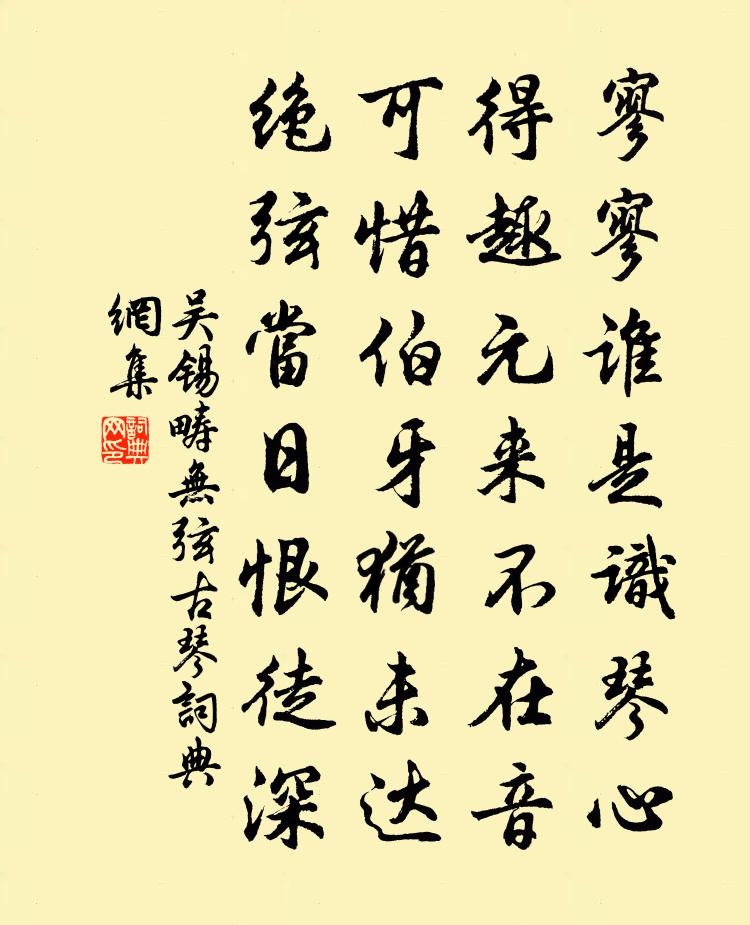 寥寥谁是識琴心
得趣元来不在音
可惜伯牙猶未达
绝弦當日恨徒深
吴錫畴無弦古琴詞典
網集
詞典
网印